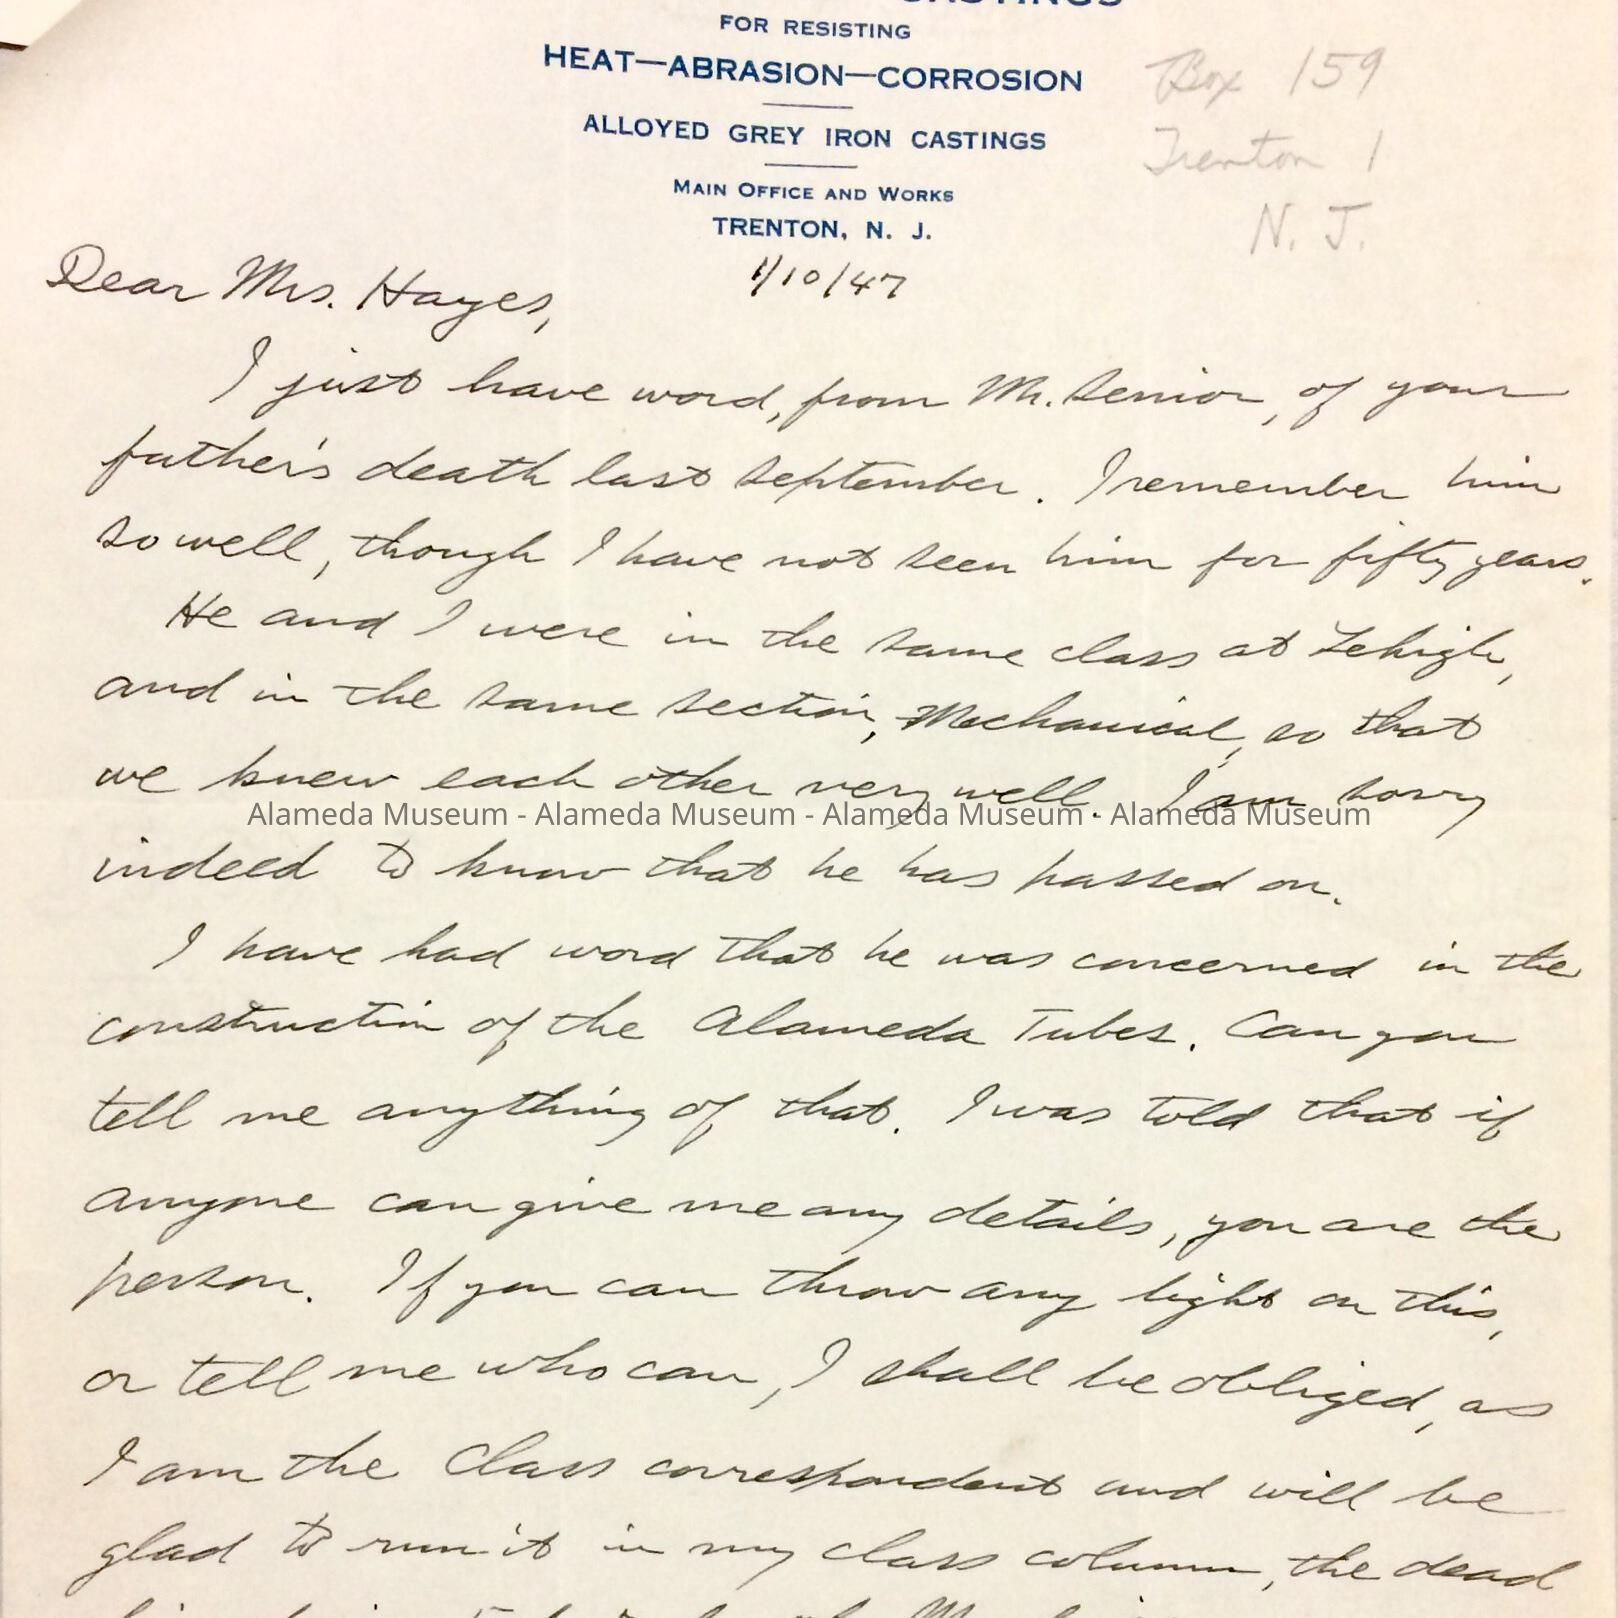 CASTINGS
FOR RESISTING
HEAT—ABRASION—CORROSION
ALLOYED GREY IRON CASTINGS
MAIN OFFICE AND WORKS
TRENTON, N. J.
Box 159
Trenton 1
N. J.
1/10/47
Dear Mrs. Hayes,
I just have word, from Mr. Senior, of your
father's death last September. I remember him
so well, though I have not seen him for fifty years.
He and I were in the same class at Lehigh,
and in the same section, Mechanical, so that
we knew each other very well. I am sorry
Alameda Museum - Alameda Museum - Alameda Museum - Alameda Museum
indeed to know that he has passed on.
I have had word that he was concerned in the
construction of the Alameda Tubes. Can you
tell me anything of that. I was told that if
anyone can give me any details, you are the
person. If you can throw any light on this,
or tell me who can, I shall be obliged, as
I am the Class correspondent and will be
glad to run it in my class column, the dead